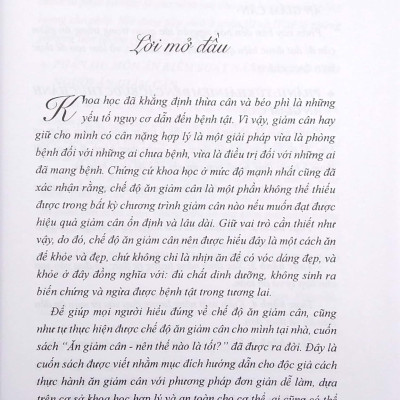 Lời mở đầu
Khoa học đã khẳng định thừa cân và béo phì là những
yếu tố nguy cơ dẫn đến bệnh tật. Vì vậy, giảm cân hay
giữ cho mình có cân nặng hợp lý là một giải pháp vừa là phòng
bệnh đối với những ai chưa bệnh, vừa là điều trị đối với những ai
đã mang bệnh. Chứng cứ khoa học ở mức độ mạnh nhất cũng đã
xác nhận rằng, chế độ ăn giảm cân là một phần không thể thiếu
được trong bất kỳ chương trình giảm cân nào nếu muốn đạt được
hiệu quả giảm cân ổn định và lâu dài. Giữ vai trò cần thiết như
vậy, do đó, chế độ ăn giảm cân nên được hiểu đây là một cách ăn
để khỏe và đẹp, chứ không chỉ là nhịn ăn để có vóc dáng đẹp, và
khỏe ở đây đồng nghĩa với: đủ chất dinh dưỡng, không sinh ra
biến chứng và ngừa được bệnh tật trong tương lai.
Để giúp mọi người hiểu đúng về chế độ ăn giảm cân, cũng
như tự thực hiện được chế độ ăn giảm cân cho mình tại nhà, cuốn
sách “Ăn giảm cân - nên thế nào là tốt?” đã được ra đời. Đây là
cuốn sách được viết nhằm mục đích hướng dẫn cho độc giả cách
thực hành ăn giảm cân với phương pháp đơn giản dễ làm, dựa
trên cơ sở khoa học hợp lý và an toàn cho cơ thể, ai cũng có thể